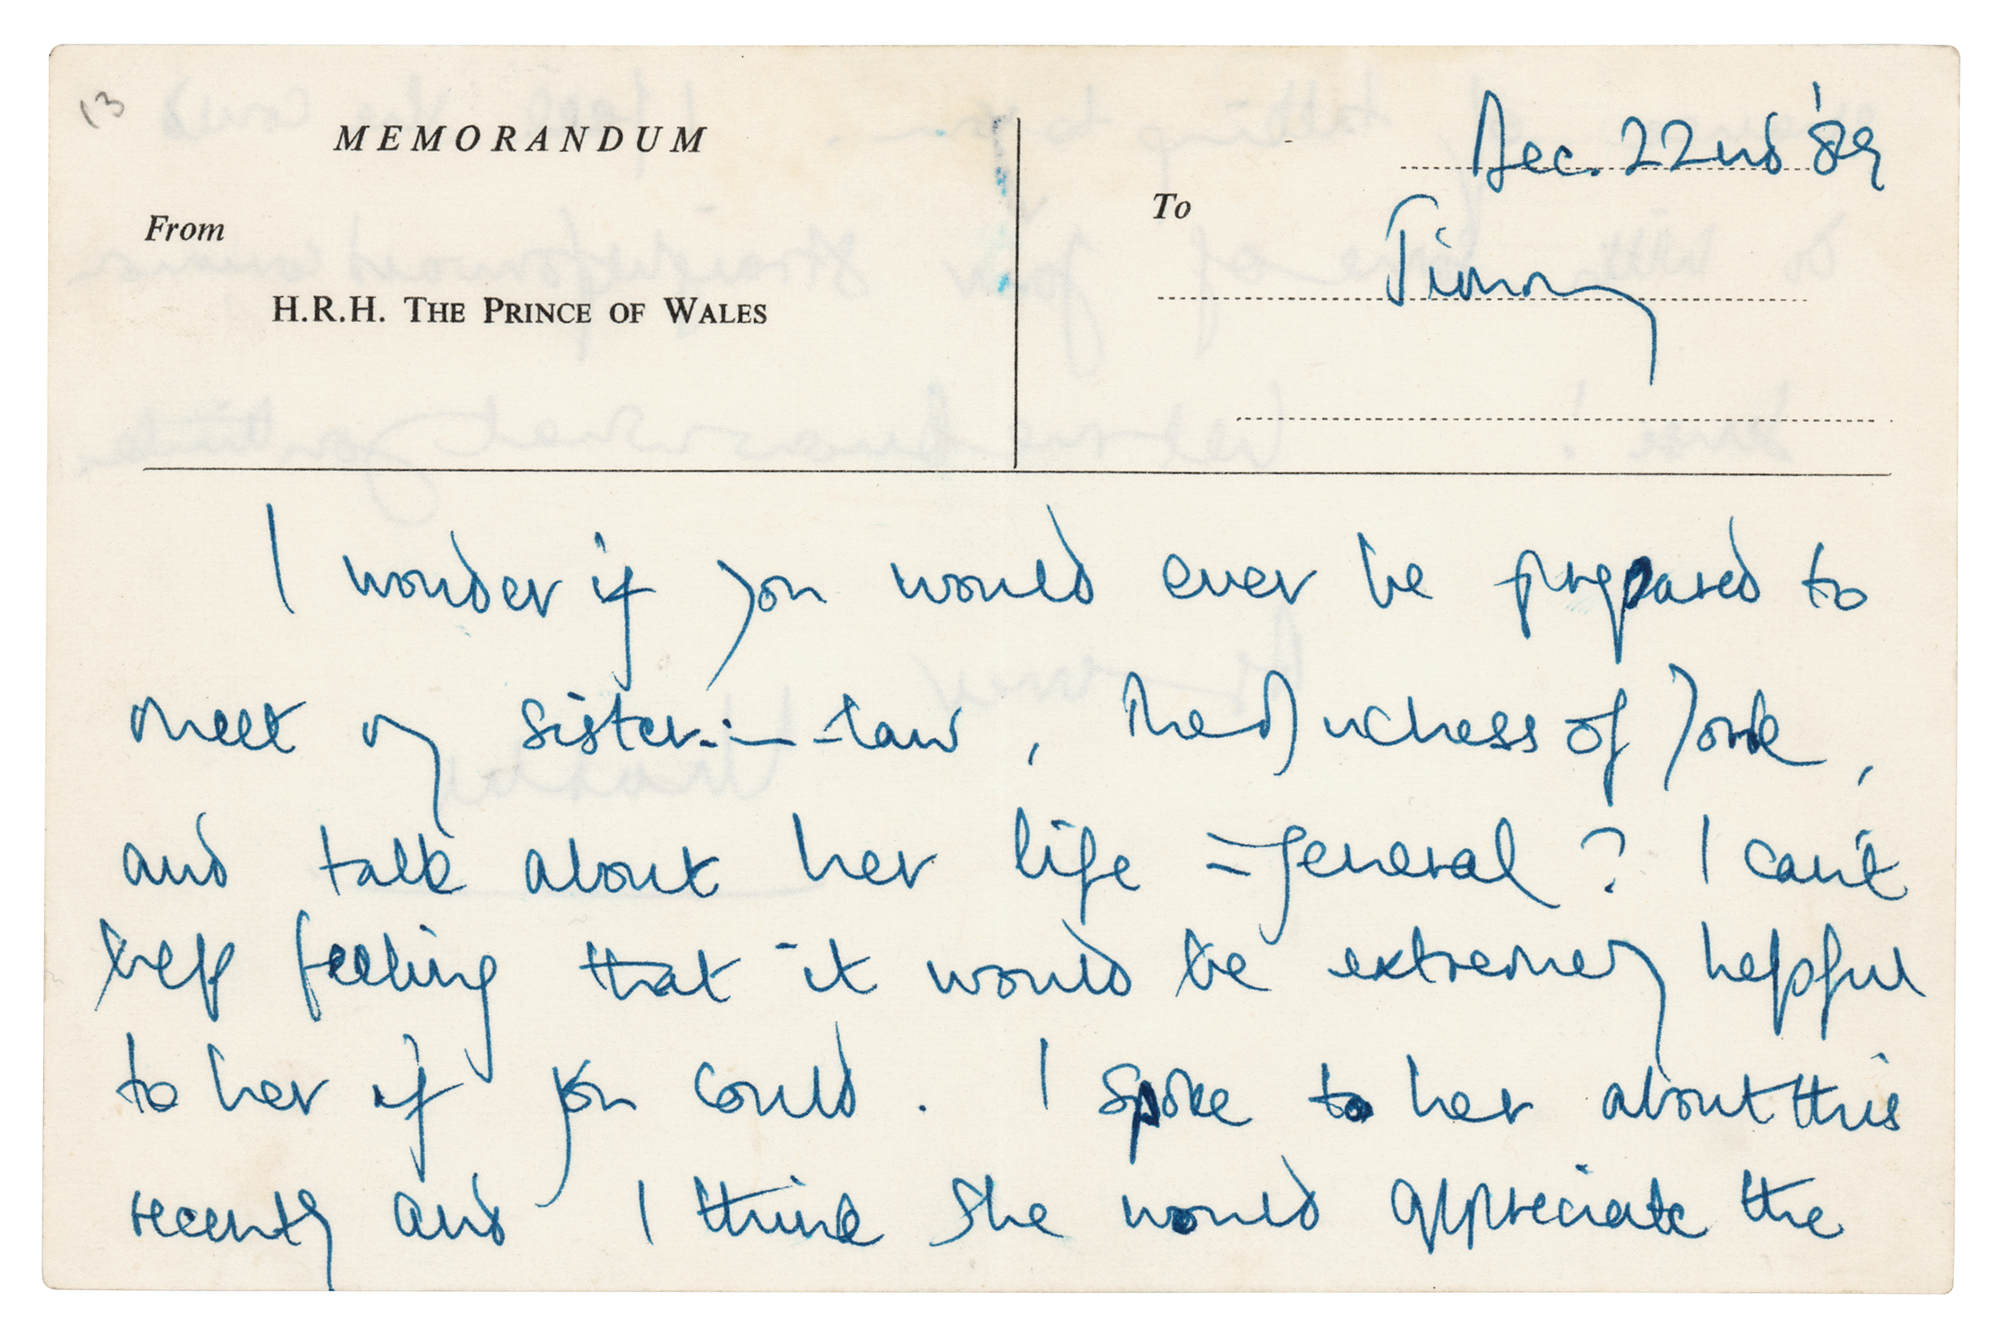 13
MEMORANDUM
Dec. 22nd '89
From
To
Jimmy
H.R.H. THE PRINCE OF WALES
I wonder if you would ever be prepared to
meet my sister-in-law, the Duchess of York,
and talk about her life in general? I can't
help feeling that it would be extremely helpful
to her if you could. I spoke to her about this
recently and I think she would appreciate the